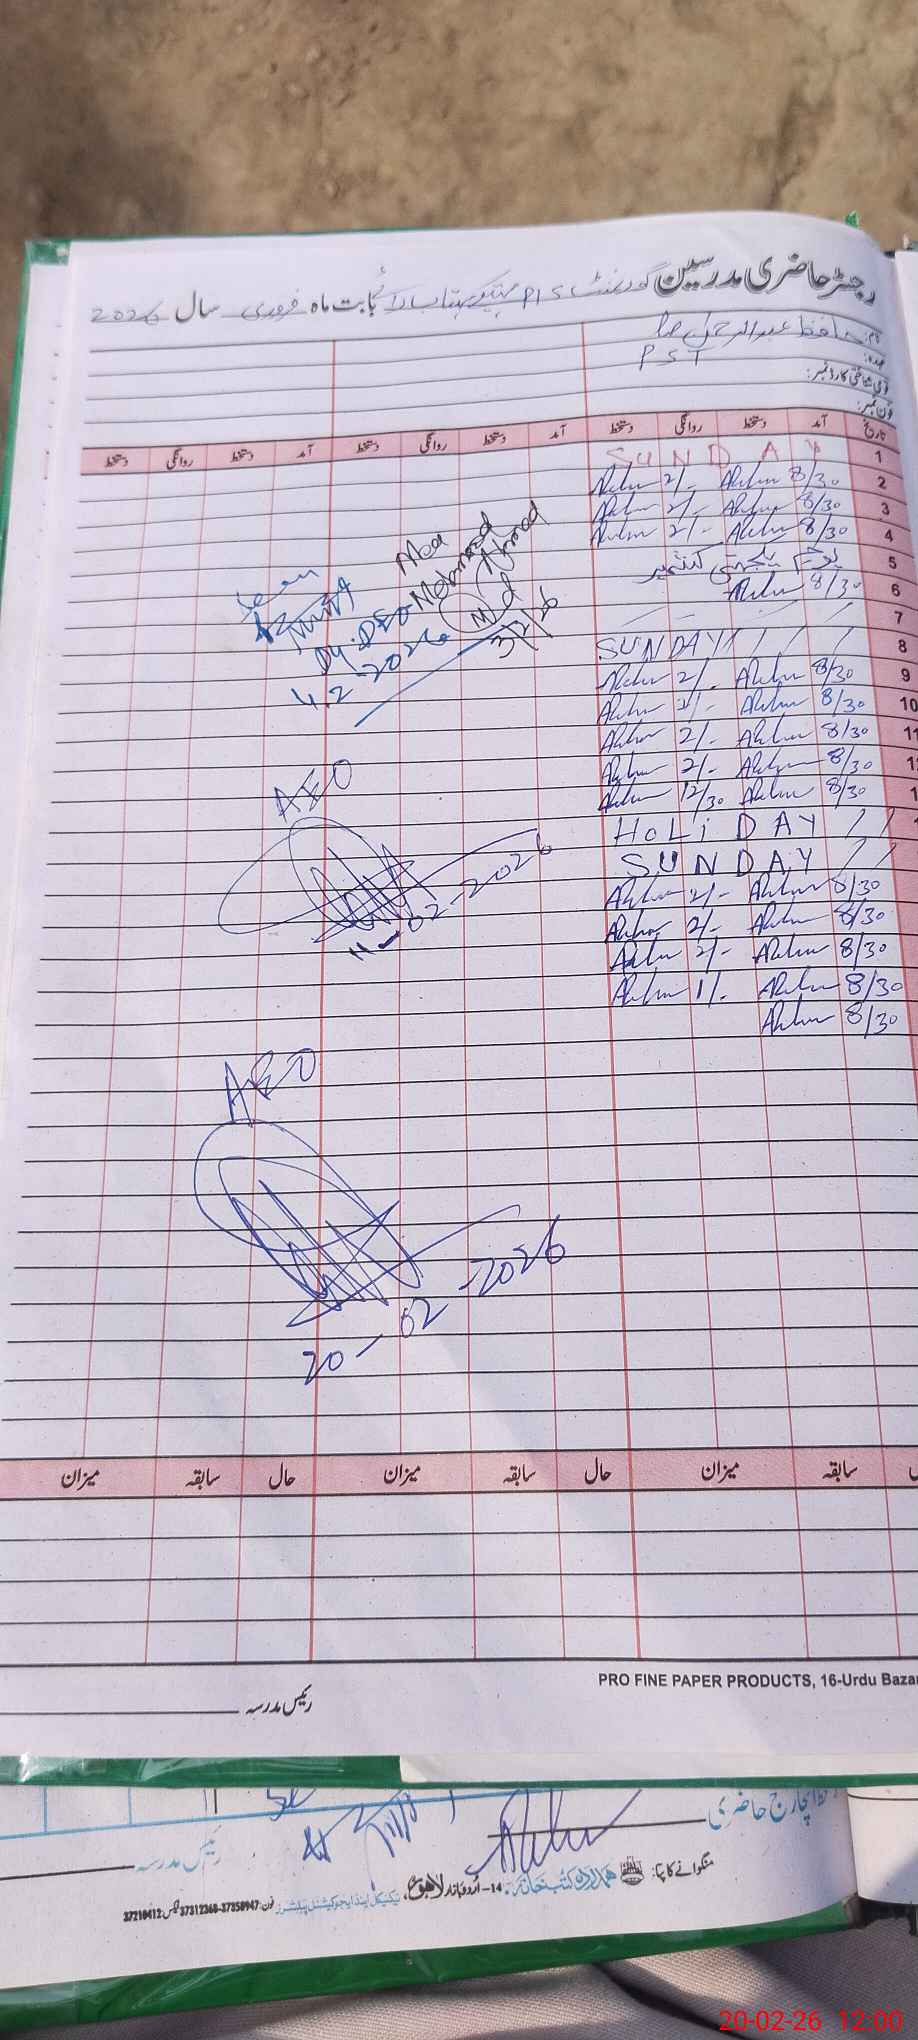 رجسٹر حاضری مدرسین گورنمنٹ P/S بابت ماہ فروری سال 2026
نام: حافظ عبدالرحمٰن
عہدہ: PST
قومی شناختی کارڈ نمبر:
فون نمبر:
تاریخ آمد دستخط روانگی دستخط آمد دستخط روانگی دستخط آمد دستخط روانگی دستخط
1 SUNDAY
2 8/30 2/-
3 8/30 2/-
4 8/30 2/-
5 یوم یکجہتی کشمیر
6 8/30
7
8 SUNDAY
9 8/30 2/-
10 8/30 2/-
11 8/30 2/-
8/30 2/-
8/30 12/30
HOLiDAY
SUNDAY
8/30 2/-
8/30 2/-
8/30 2/-
8/30 1/-
8/30
Mea
Mehmood Ahmad
Md
3/2/26
Seen
Dy. DEO
4.2-2026
AEO
11-02-2026
AEO
20-02-2026
سابقہ میزان حال سابقہ میزان حال سابقہ میزان
PRO FINE PAPER PRODUCTS, 16-Urdu Bazar
رئیس مدرسہ
انچارج حاضری
رئیس مدرسہ
منگوانے کا پتہ: ہمدرد کتب خانہ 14-اردو بازار لاہور
فون: 37312368-37358947 فیکس: 37210412
20-02-26 12:00